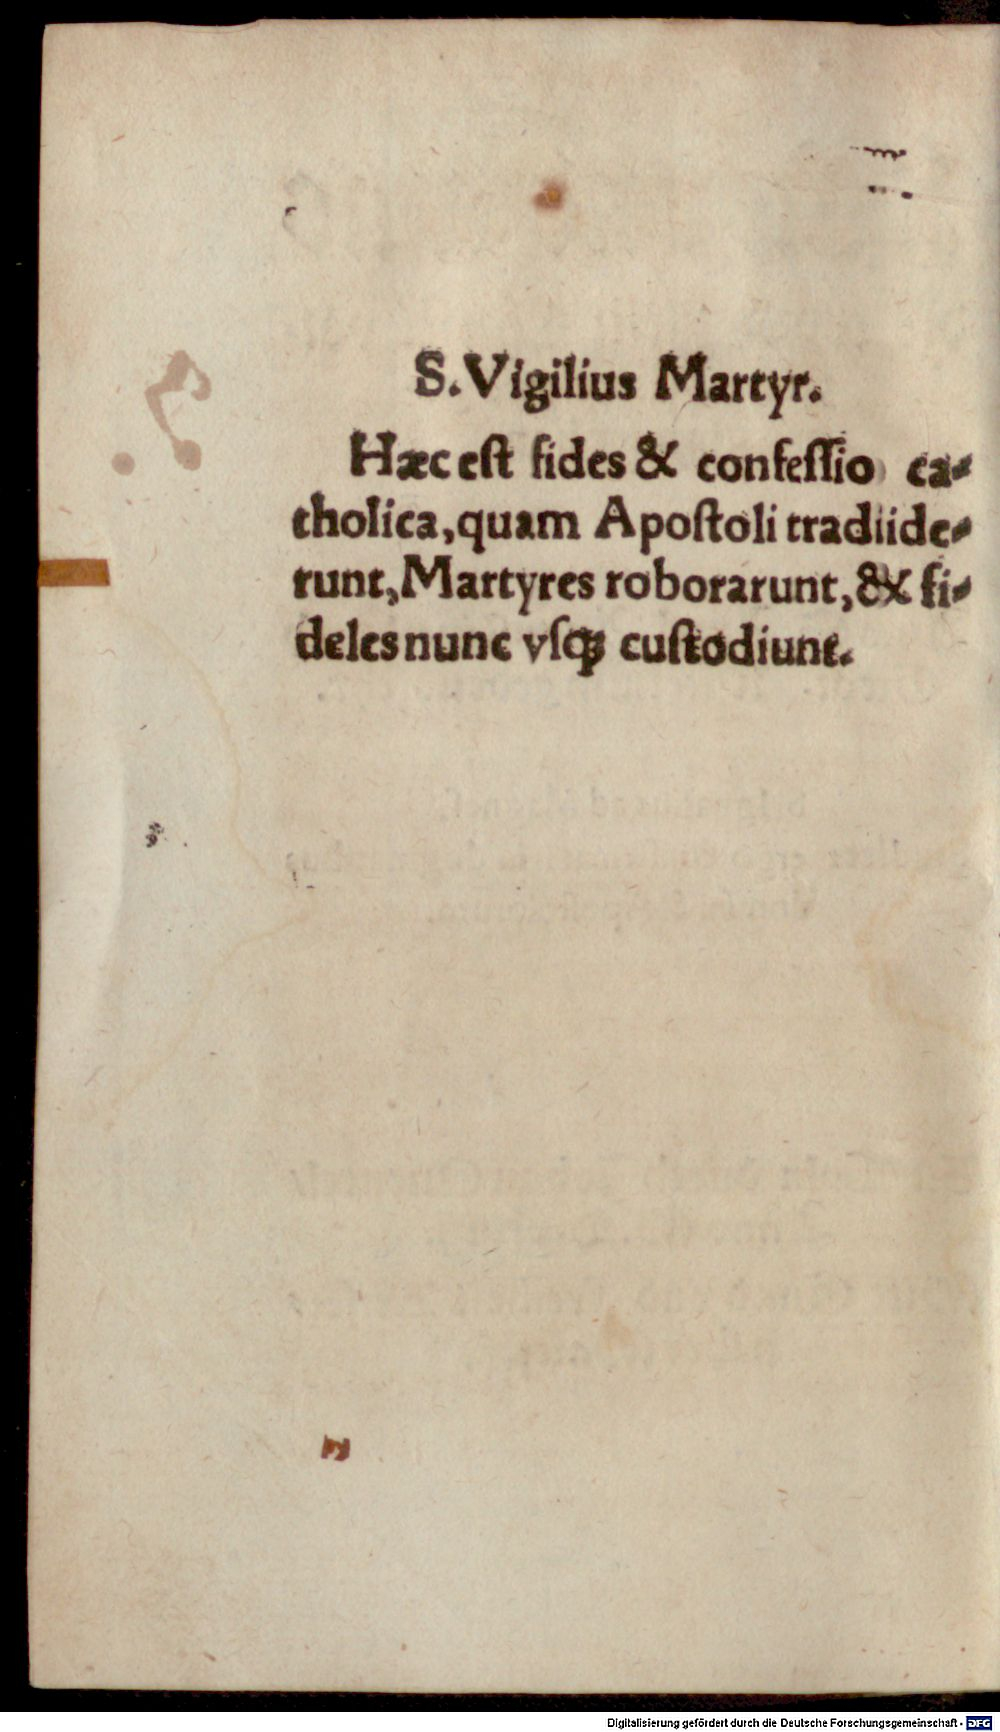 S. Vigilius Martyr.
Hæc eſt fides & confeſſio ca-
tholica, quam Apoſtoli tradiide-
runt, Martyres roborarunt, & fi-
deles nunc vſqꝫ cuſtodiunt.
Digitalisierung gefördert durch die Deutsche Forschungsgemeinschaft - DFG